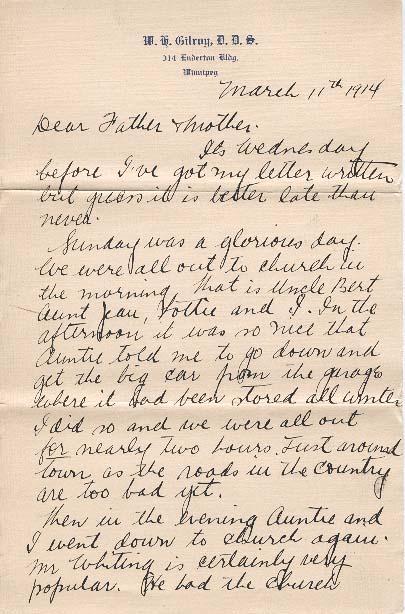 W. H. Gilroy, D. D. S.
314 Enderton Bldg.
Winnipeg
March 11th 1914
Dear Father & Mother.
Its Wednesday
before I've got my letter written
but guess it is better late than
never.
Sunday was a glorious day.
We were all out to church in
the morning, that is Uncle Bert
Aunt Jean, Dottie and I. In the
afternoon it was so nice that
Auntie told me to go down and
get the big car from the garage
where it had been stored all winter
I did so and we were all out
for nearly two hours. Just around
town as the roads in the country
are too bad yet.
Then in the evening Auntie and
I went down to church again.
Mr Whiting is certainly very
popular. He had the church